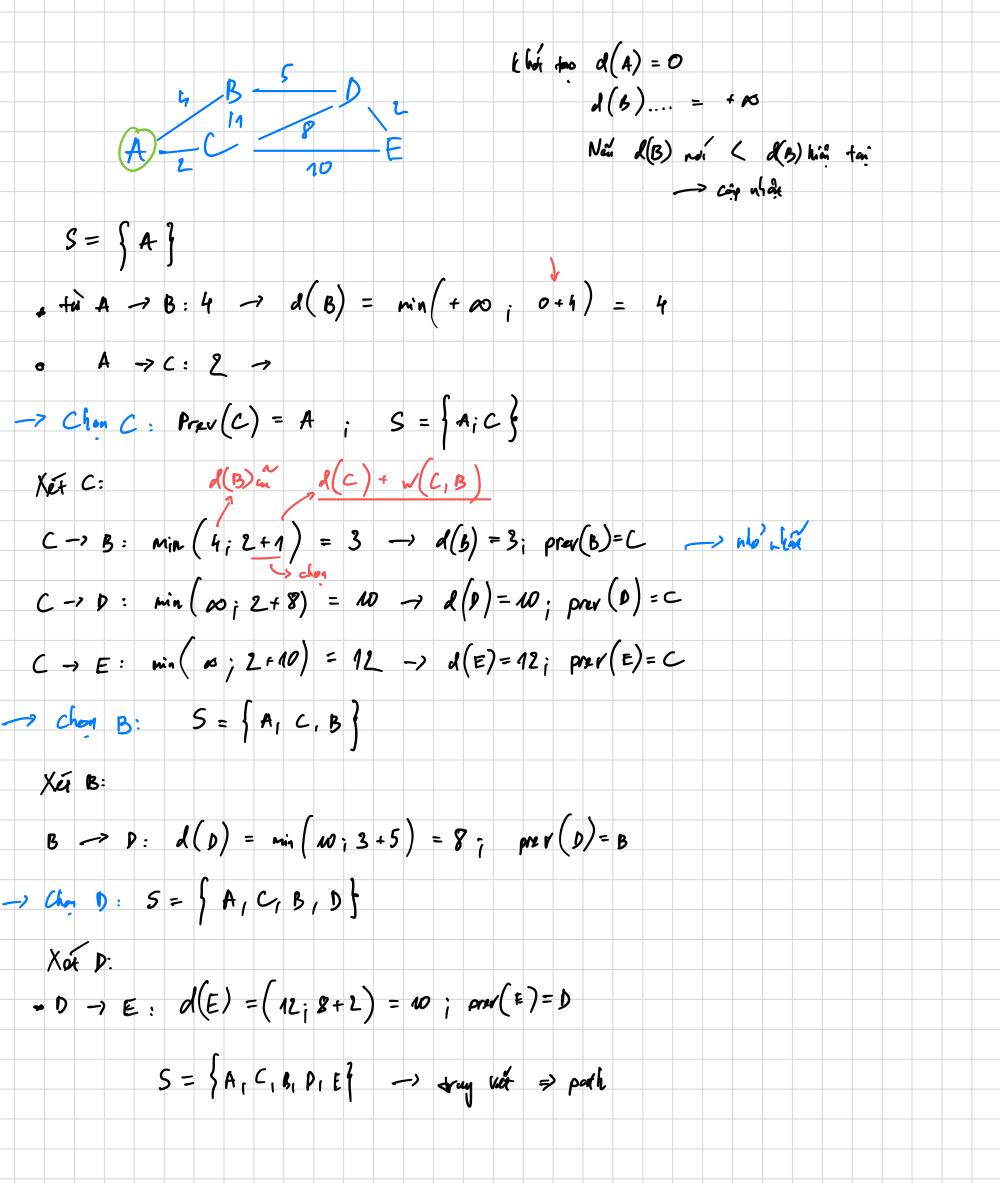 Khởi tạo d(A) = 0
d(B).... = +∞
Nếu d(B) mới < d(B) hiện tại
→ cập nhật
4 B 5 D 2
A 2 C 1 8 E
10
S = { A }
• từ A → B: 4 → d(B) = min(+∞ ; 0+4) = 4
• A → C: 2 →
→ Chọn C: Prev(C) = A ; S = {A; C}
Xét C: d(B) cũ d(C) + w(C, B)
C → B: min(4; 2+1) = 3 → d(B) = 3; prev(B)=C → nhỏ nhất
→ chọn
C → D: min(∞; 2+8) = 10 → d(D)=10; prev(D)=C
C → E: min(∞; 2+10) = 12 → d(E)=12; prev(E)=C
→ Chọn B: S = { A, C, B }
Xét B:
B → D: d(D) = min(10; 3+5) = 8 ; prev(D)=B
→ Chọn D: S = { A, C, B, D }
Xét D:
• D → E: d(E) = (12; 8+2) = 10 ; prev(E)=D
S = {A, C, B, D, E} → truy vết ⇒ path